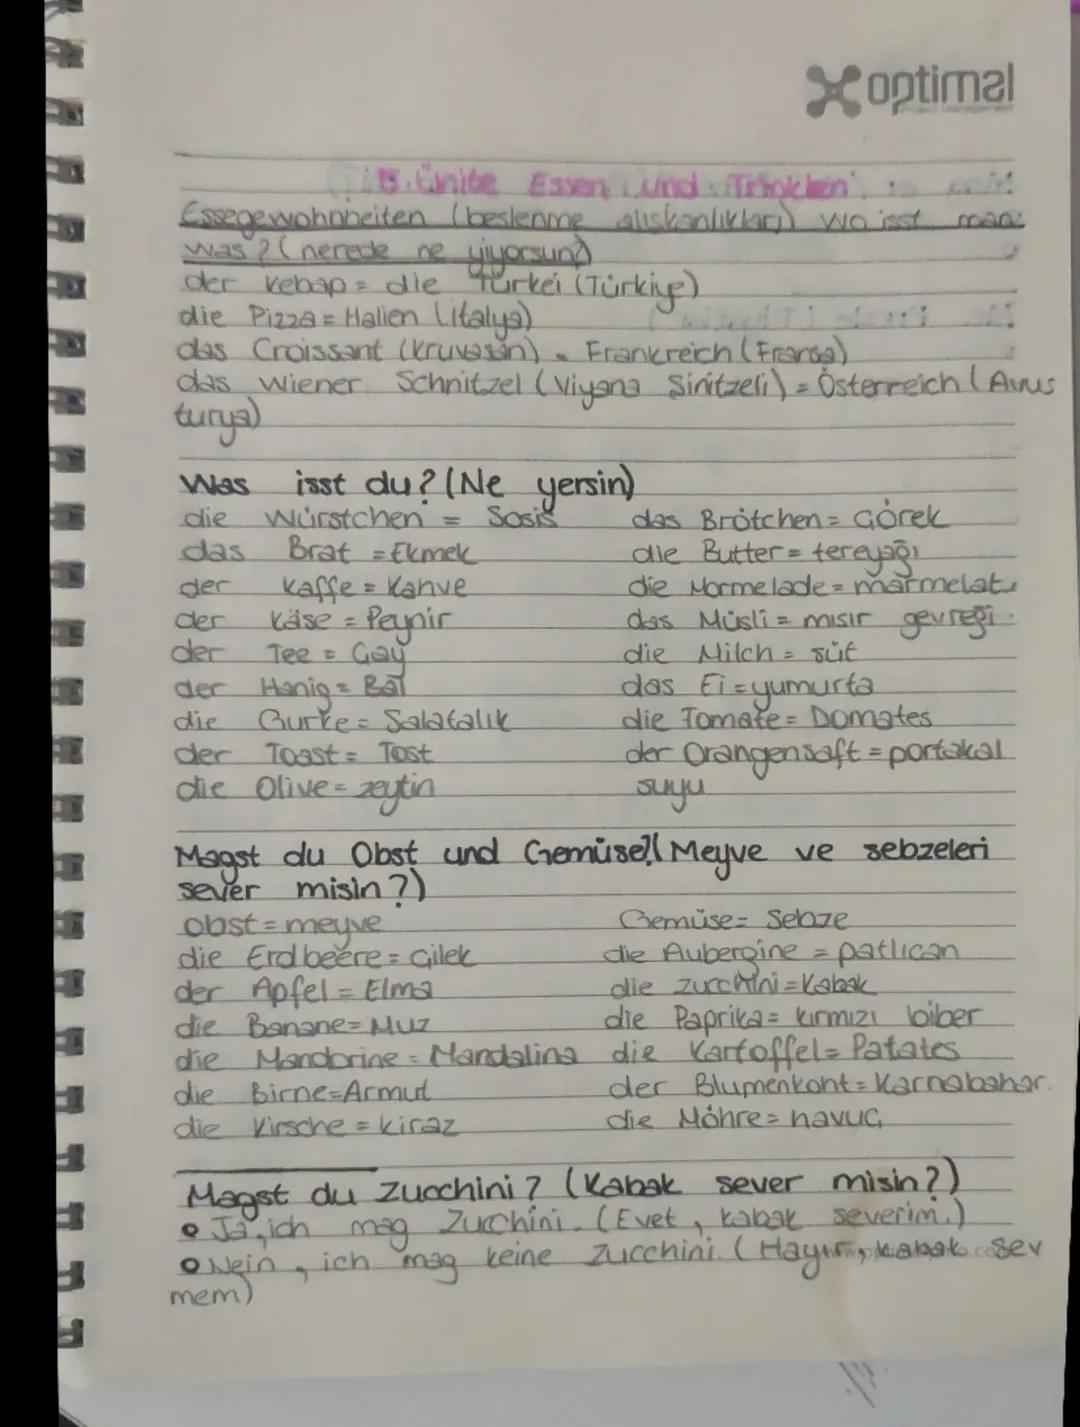 optimal
5. Ünite Essen und Trinkken
Essegewohnheiten (beslenme alışkanlıkları) wo isst man
was? (nerede ne yiyorsun?)
der Kebap = die Türkei (Türkiye)
die Pizza = Italien (İtalya)
das Croissant (kruvasan) = Frankreich (Fransa)
das Wiener Schnitzel (Viyana Şinitzeli) = Österreich (Avus
turya)
Was isst du? (Ne yersin)
die Würstchen = Sosis
das Brötchen = Çörek
das Brat = Ekmek
die Butter = tereyağı
der Kaffe = Kahve
die Marmelade = marmelat
der Käse = Peynir
das Müsli = mısır gevreği
der Tee = Çay
die Milch = süt
der Honig = Bal
das Ei = yumurta
die Gurke = Salatalık
die Tomate = Domates
der Toast = Tost
der Orangensaft = portakal
die Olive = zeytin
suyu
Magst du Obst und Gemüse? (Meyve ve sebzeleri
sever misin?)
obst = meyve
Gemüse = Sebze
die Erdbeere = Çilek
die Aubergine = patlıcan
der Apfel = Elma
die Zucchini = Kabak
die Banane = Muz
die Paprika = kırmızı biber
die Mandarine = Mandalina
die Kartoffel = Patates
die Birne = Armut
der Blumenkoht = Karnabahar
die Kirsche = kiraz
die Möhre = havuç
Magst du Zucchini? (Kabak sever misin?)
• Ja, ich mag Zucchini. (Evet, kabak severim.)
• Nein, ich mag keine Zucchini. (Hayır, kabak sev
mem)